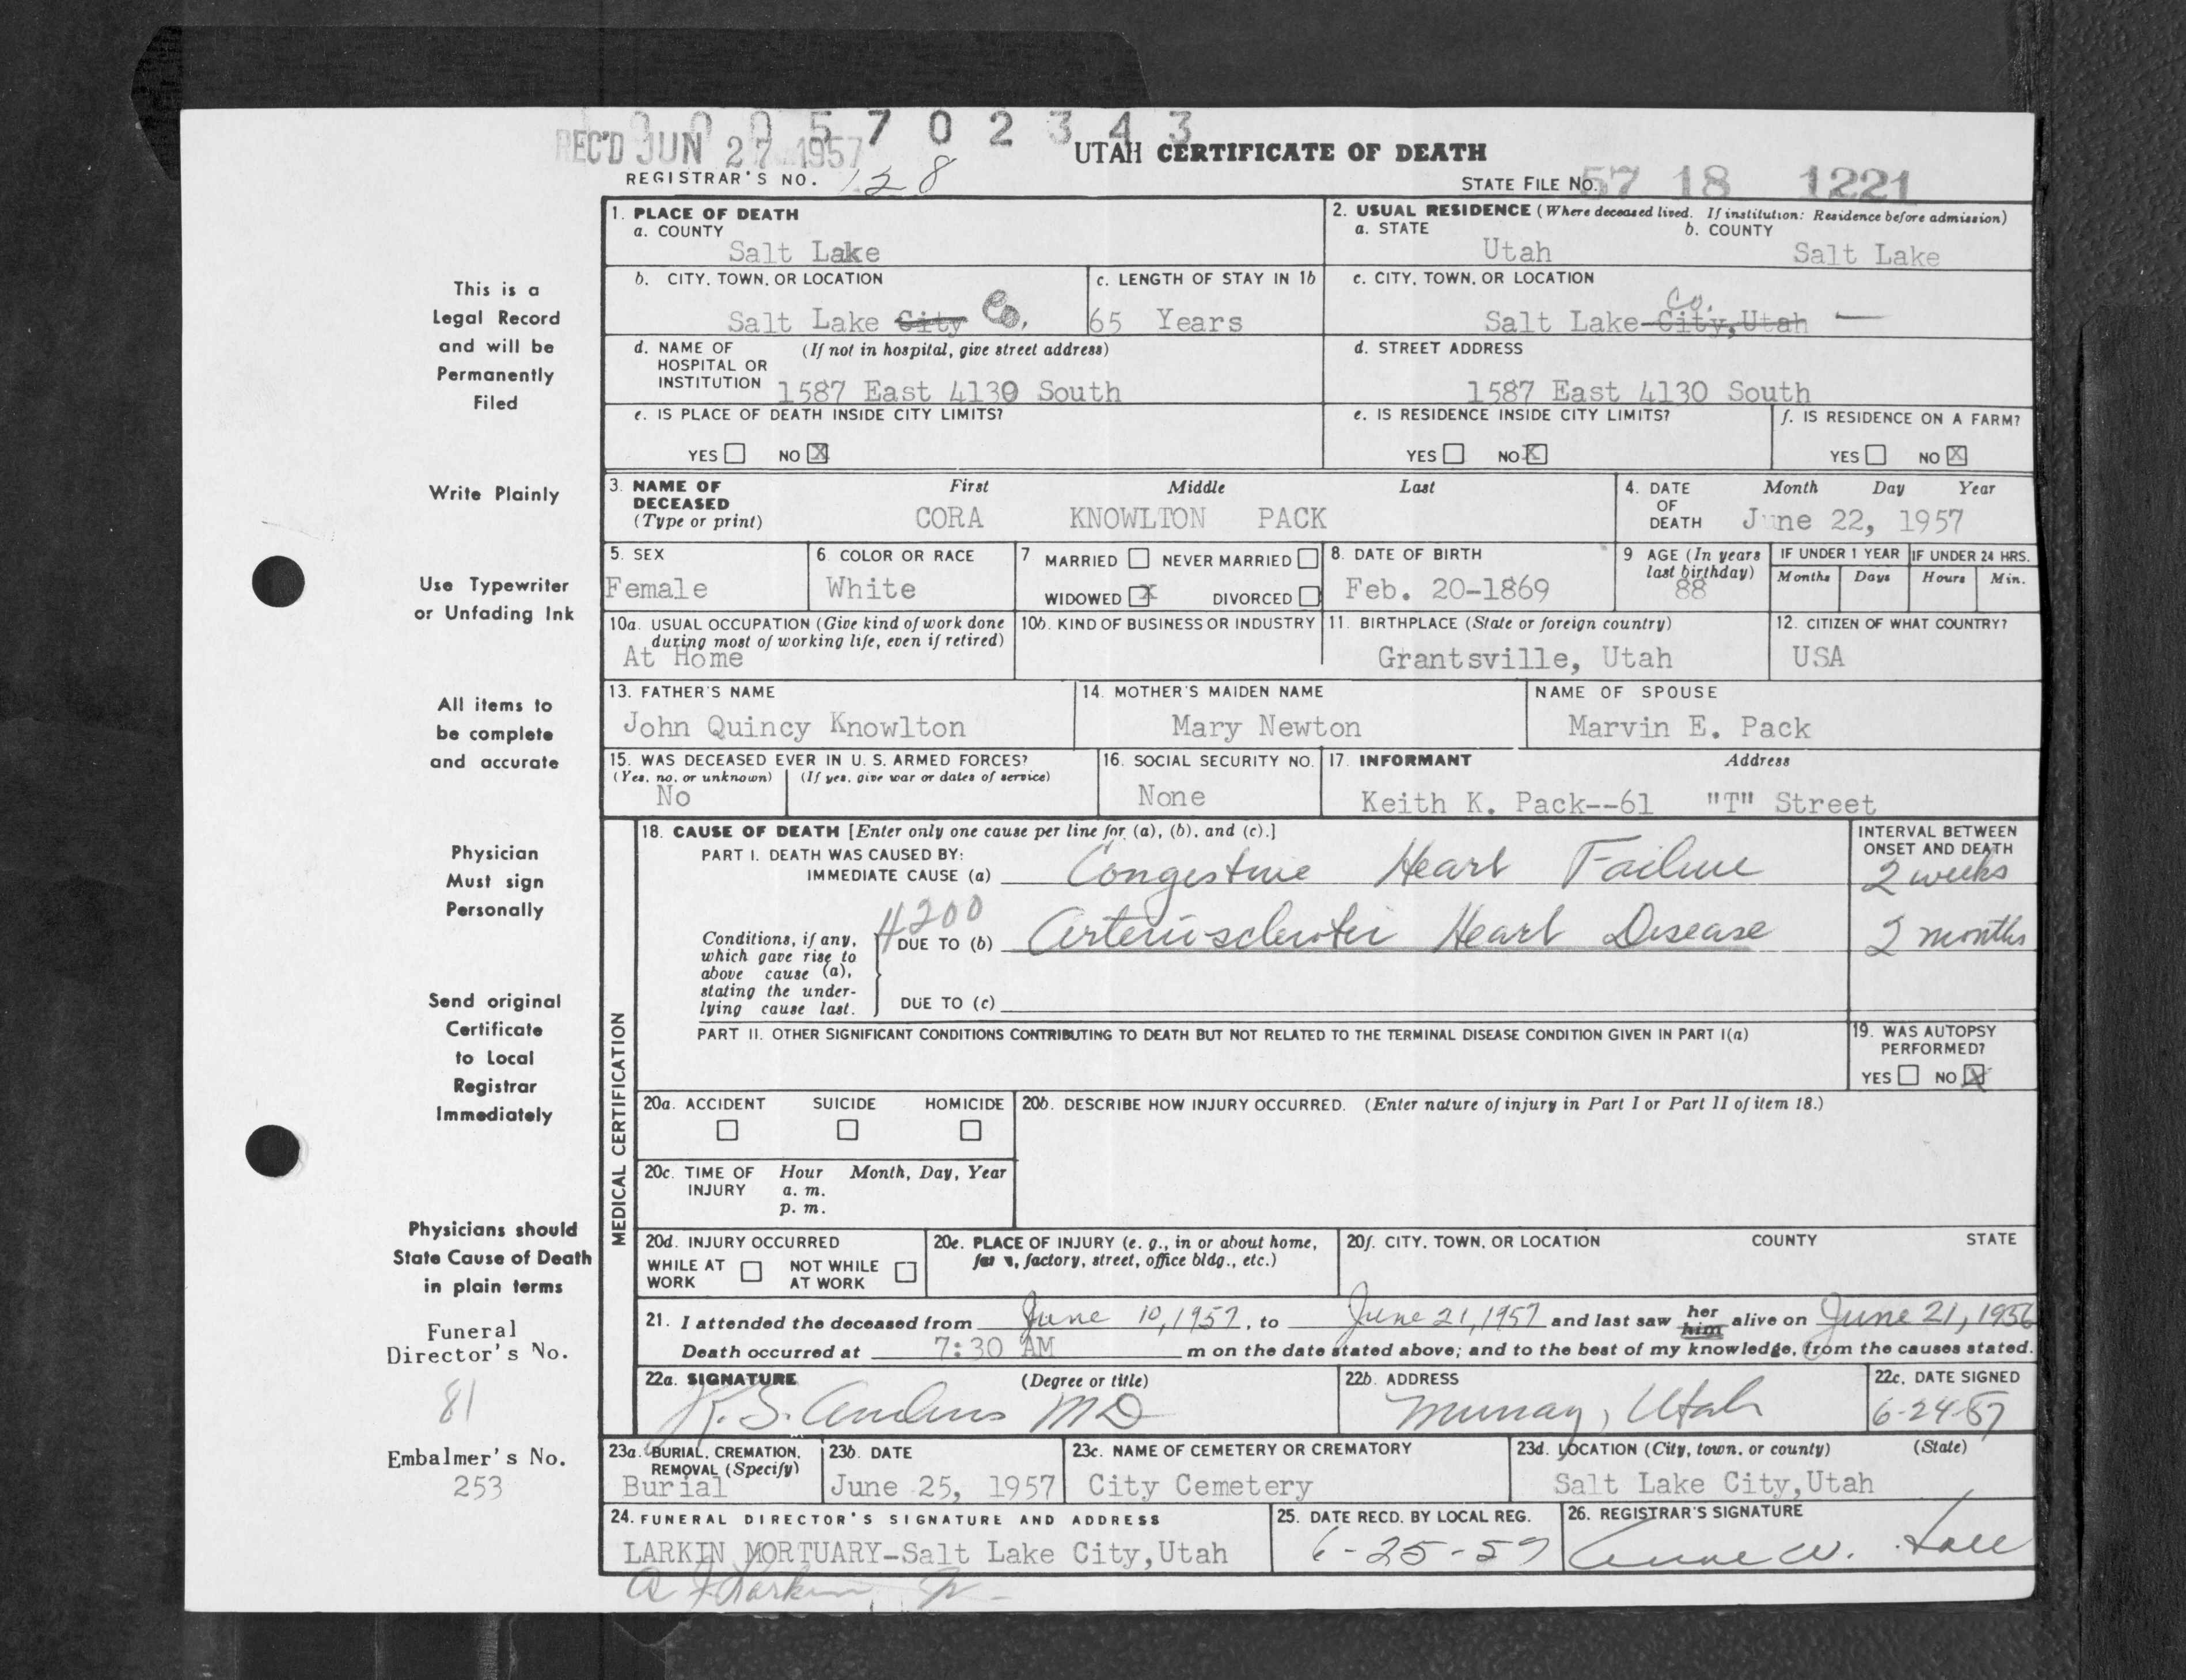 1 0 0 5 7 0 2 3 4 3
REC'D JUN 27 1957
UTAH CERTIFICATE OF DEATH
REGISTRAR'S NO. 128
STATE FILE NO. 57 18 1221
1. PLACE OF DEATH
a. COUNTY
Salt Lake
2. USUAL RESIDENCE (Where deceased lived. If institution: Residence before admission)
a. STATE b. COUNTY
Utah Salt Lake
b. CITY, TOWN, OR LOCATION
Salt Lake City Co.
c. LENGTH OF STAY IN 1b
65 Years
c. CITY, TOWN, OR LOCATION
Co.
Salt Lake City, Utah
d. NAME OF (If not in hospital, give street address)
HOSPITAL OR
INSTITUTION 1587 East 4130 South
d. STREET ADDRESS
1587 East 4130 South
e. IS PLACE OF DEATH INSIDE CITY LIMITS?
YES NO X
e. IS RESIDENCE INSIDE CITY LIMITS?
YES NO X
f. IS RESIDENCE ON A FARM?
YES NO X
3. NAME OF DECEASED (Type or print)
First Middle Last
CORA KNOWLTON PACK
4. DATE OF DEATH
Month Day Year
June 22, 1957
5. SEX
Female
6. COLOR OR RACE
White
7 MARRIED NEVER MARRIED
WIDOWED X DIVORCED
8. DATE OF BIRTH
Feb. 20-1869
9 AGE (In years last birthday)
88
IF UNDER 1 YEAR IF UNDER 24 HRS.
Months Days Hours Min.
10a. USUAL OCCUPATION (Give kind of work done
during most of working life, even if retired)
At Home
10b. KIND OF BUSINESS OR INDUSTRY
11. BIRTHPLACE (State or foreign country)
Grantsville, Utah
12. CITIZEN OF WHAT COUNTRY?
USA
13. FATHER'S NAME
John Quincy Knowlton
14. MOTHER'S MAIDEN NAME
Mary Newton
NAME OF SPOUSE
Marvin E. Pack
15. WAS DECEASED EVER IN U. S. ARMED FORCES?
(Yes, no, or unknown) (If yes, give war or dates of service)
No
16. SOCIAL SECURITY NO.
None
17. INFORMANT Address
Keith K. Pack--61 "T" Street
MEDICAL CERTIFICATION
18. CAUSE OF DEATH [Enter only one cause per line for (a), (b), and (c).]
PART I. DEATH WAS CAUSED BY:
IMMEDIATE CAUSE (a) Congestive Heart Failure
INTERVAL BETWEEN
ONSET AND DEATH
2 weeks
4200
Conditions, if any,
which gave rise to
above cause (a),
stating the under-
lying cause last.
DUE TO (b) Arteriosclerotic Heart Disease
2 months
DUE TO (c)
PART II. OTHER SIGNIFICANT CONDITIONS CONTRIBUTING TO DEATH BUT NOT RELATED TO THE TERMINAL DISEASE CONDITION GIVEN IN PART I(a)
19. WAS AUTOPSY
PERFORMED?
YES NO X
20a. ACCIDENT SUICIDE HOMICIDE
20b. DESCRIBE HOW INJURY OCCURRED. (Enter nature of injury in Part I or Part II of item 18.)
20c. TIME OF INJURY
Hour Month, Day, Year
a. m.
p. m.
20d. INJURY OCCURRED
WHILE AT WORK NOT WHILE AT WORK
20e. PLACE OF INJURY (e. g., in or about home,
farm, factory, street, office bldg., etc.)
20f. CITY, TOWN, OR LOCATION COUNTY STATE
21. I attended the deceased from June 10, 1957, to June 21, 1957 and last saw her him alive on June 21, 1956
Death occurred at 7:30 AM m on the date stated above; and to the best of my knowledge, from the causes stated.
22a. SIGNATURE (Degree or title)
MD
22b. ADDRESS
Murray, Utah
22c. DATE SIGNED
6-24-57
23a. BURIAL, CREMATION,
REMOVAL (Specify)
Burial
23b. DATE
June 25, 1957
23c. NAME OF CEMETERY OR CREMATORY
City Cemetery
23d. LOCATION (City, town, or county) (State)
Salt Lake City, Utah
24. FUNERAL DIRECTOR'S SIGNATURE AND ADDRESS
LARKIN MORTUARY-Salt Lake City, Utah
25. DATE RECD. BY LOCAL REG.
6-25-57
26. REGISTRAR'S SIGNATURE
Anne W.
This is a
Legal Record
and will be
Permanently
Filed
Write Plainly
Use Typewriter
or Unfading Ink
All items to
be complete
and accurate
Physician
Must sign
Personally
Send original
Certificate
to Local
Registrar
Immediately
Physicians should
State Cause of Death
in plain terms
Funeral
Director's No.
81
Embalmer's No.
253